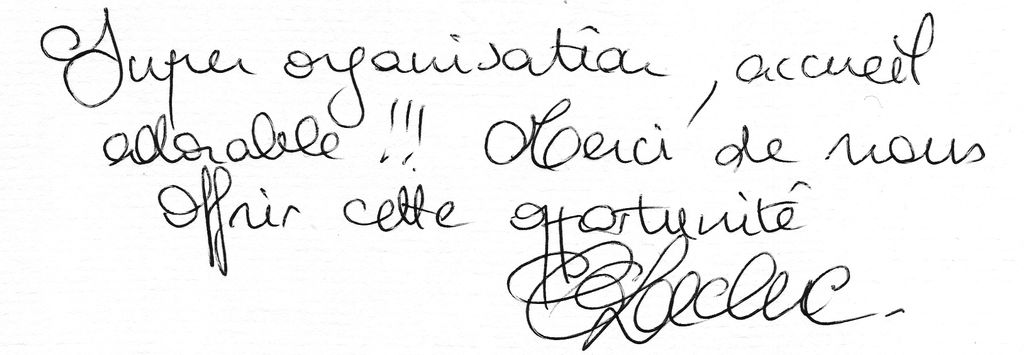 Super organisation, accueil
adorable !!! Merci de nous
offrir cette opportunité